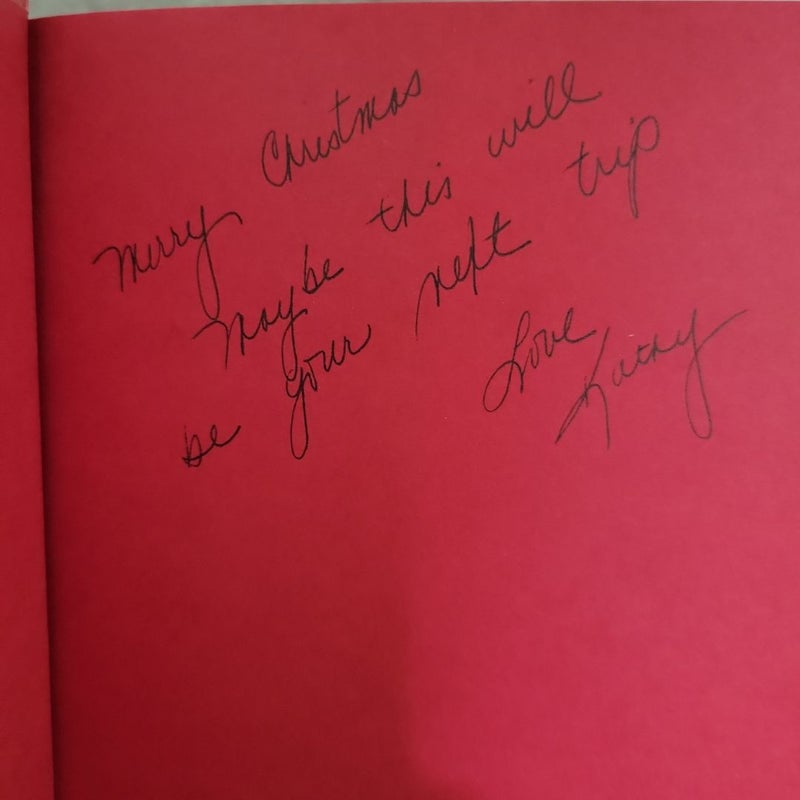 Merry Christmas
Maybe this will
be your next trip
Love
Kathy